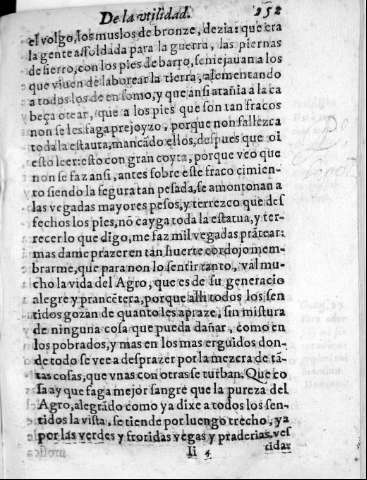 De la vtilidad. 252
el volgo, los muslos de bronze, dezia: que era
la gente assoldada para la guerra, las piernas
de fierro, con los pies de barro, semejauan a los
que viuen de laborear la tierra, alementando
a todos los de en somo, y que ansi atañia a la ca
beça otear, que a los pies que son tan fracos
non se les faga prejoyzo, porque non fallezca
toda la estauta, mancãdo ellos, despues que oi
esto leer: esto con gran coyta, porque veo que
non se faz ansi, antes sobre este fraco cimien-
to siendo la segura tan pesada, se amontonan a
las vegadas mayores pesos, y terrezco que des
fechos los pies, nõ cayga toda la estatua, y ter-
recer lo que digo, me faz mil vegadas prãtear:
mas dame prazer en tan huerte cordojo mem-
brarme, que para non lo sentir tanto, val mu-
cho la vida del Agro, que es de su generacio
alegre y prancẽtera, porque alli todos los sen
tidos gozan de quanto les apraze, sin mistura
de ninguna cosa que pueda dañar, como en
los pobrados, y mas en los mas erguidos don-
de todo se vee a desprazer por la mezcra de tã-
tas cosas, que vnas con otras se turban. Que co
sa ay que faga mejor sangre que la pureza del
Agro, alegrãdo como ya dixe a todos los sen-
tidos la vista, se tiende por luengo trecho, ya
por las verdes y froridas vegas y praderias, ves
Ii 4 tidas